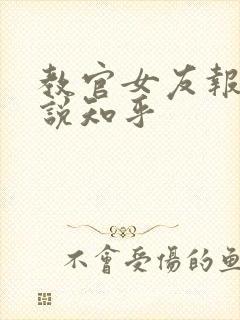 教官女友報
說知乎
不會受傷的魚